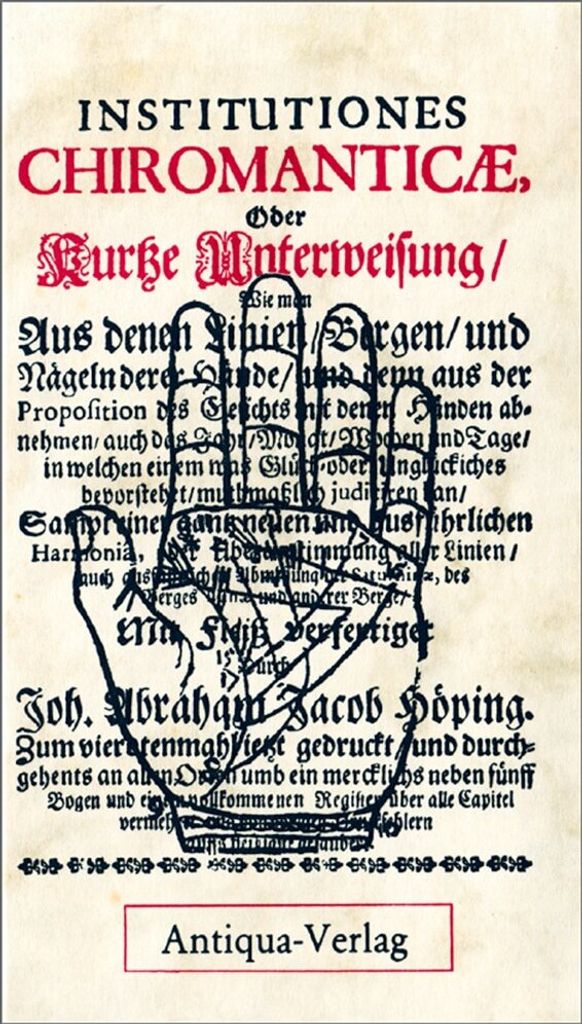 INSTITUTIONES
CHIROMANTICÆ,
Oder
Kurtze Unterweisung/
Wie man
Aus denen Linien/Bergen/und
Nägeln derer Hände/und denn aus der
Proposition des Gesichts mit denen Händen ab-
nehmen/auch das Jahr/Monat/Wochen und Tage/
in welchen einem was Glück-oder Unglückiches
bevorstehet/muthmaßlich judiciren kan/
Sampt einer gantz neuen und ausführlichen
Harmonia, oder Übereinstimmung aller Linien/
auch des
Berges und anderer Berge/
Mit Fleiß verfertiget
Durch
Joh. Abraham Jacob Höping.
Zum vierdtenmahl jetzt gedruckt/und durch-
gehents an allen Orten umb ein mercklichs neben fünff
Bogen und einem vollkommenen Register über alle Capitel
vermehret
Antiqua-Verlag